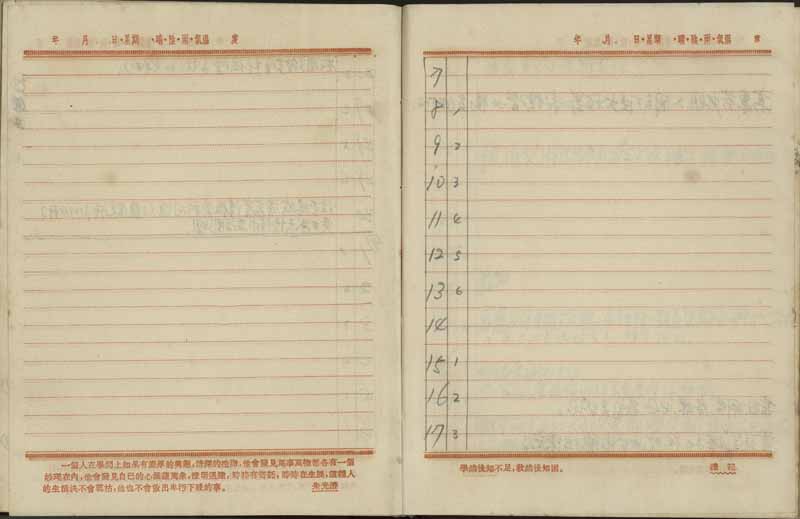 年 月 日·星期 ·晴·陰·雨·氣溫 度
一個人在學問上如果有濃厚的興趣,精深的造詣,他會發見萬事萬物都各有一個
妙理在內,他會發見自己的心涵蘊萬象,澄明通達,時時有寄託,時時在生展,這種人
的生活決不會乾枯,他也不會做出卑污下賤的事。 朱光潛
年 月 日·星期 ·晴·陰·雨·氣溫 度
7
8 1
9 2
10 3
11 4
12 5
13 6
14
15 1
16 2
17 3
學然後知不足,教然後知困。 禮記